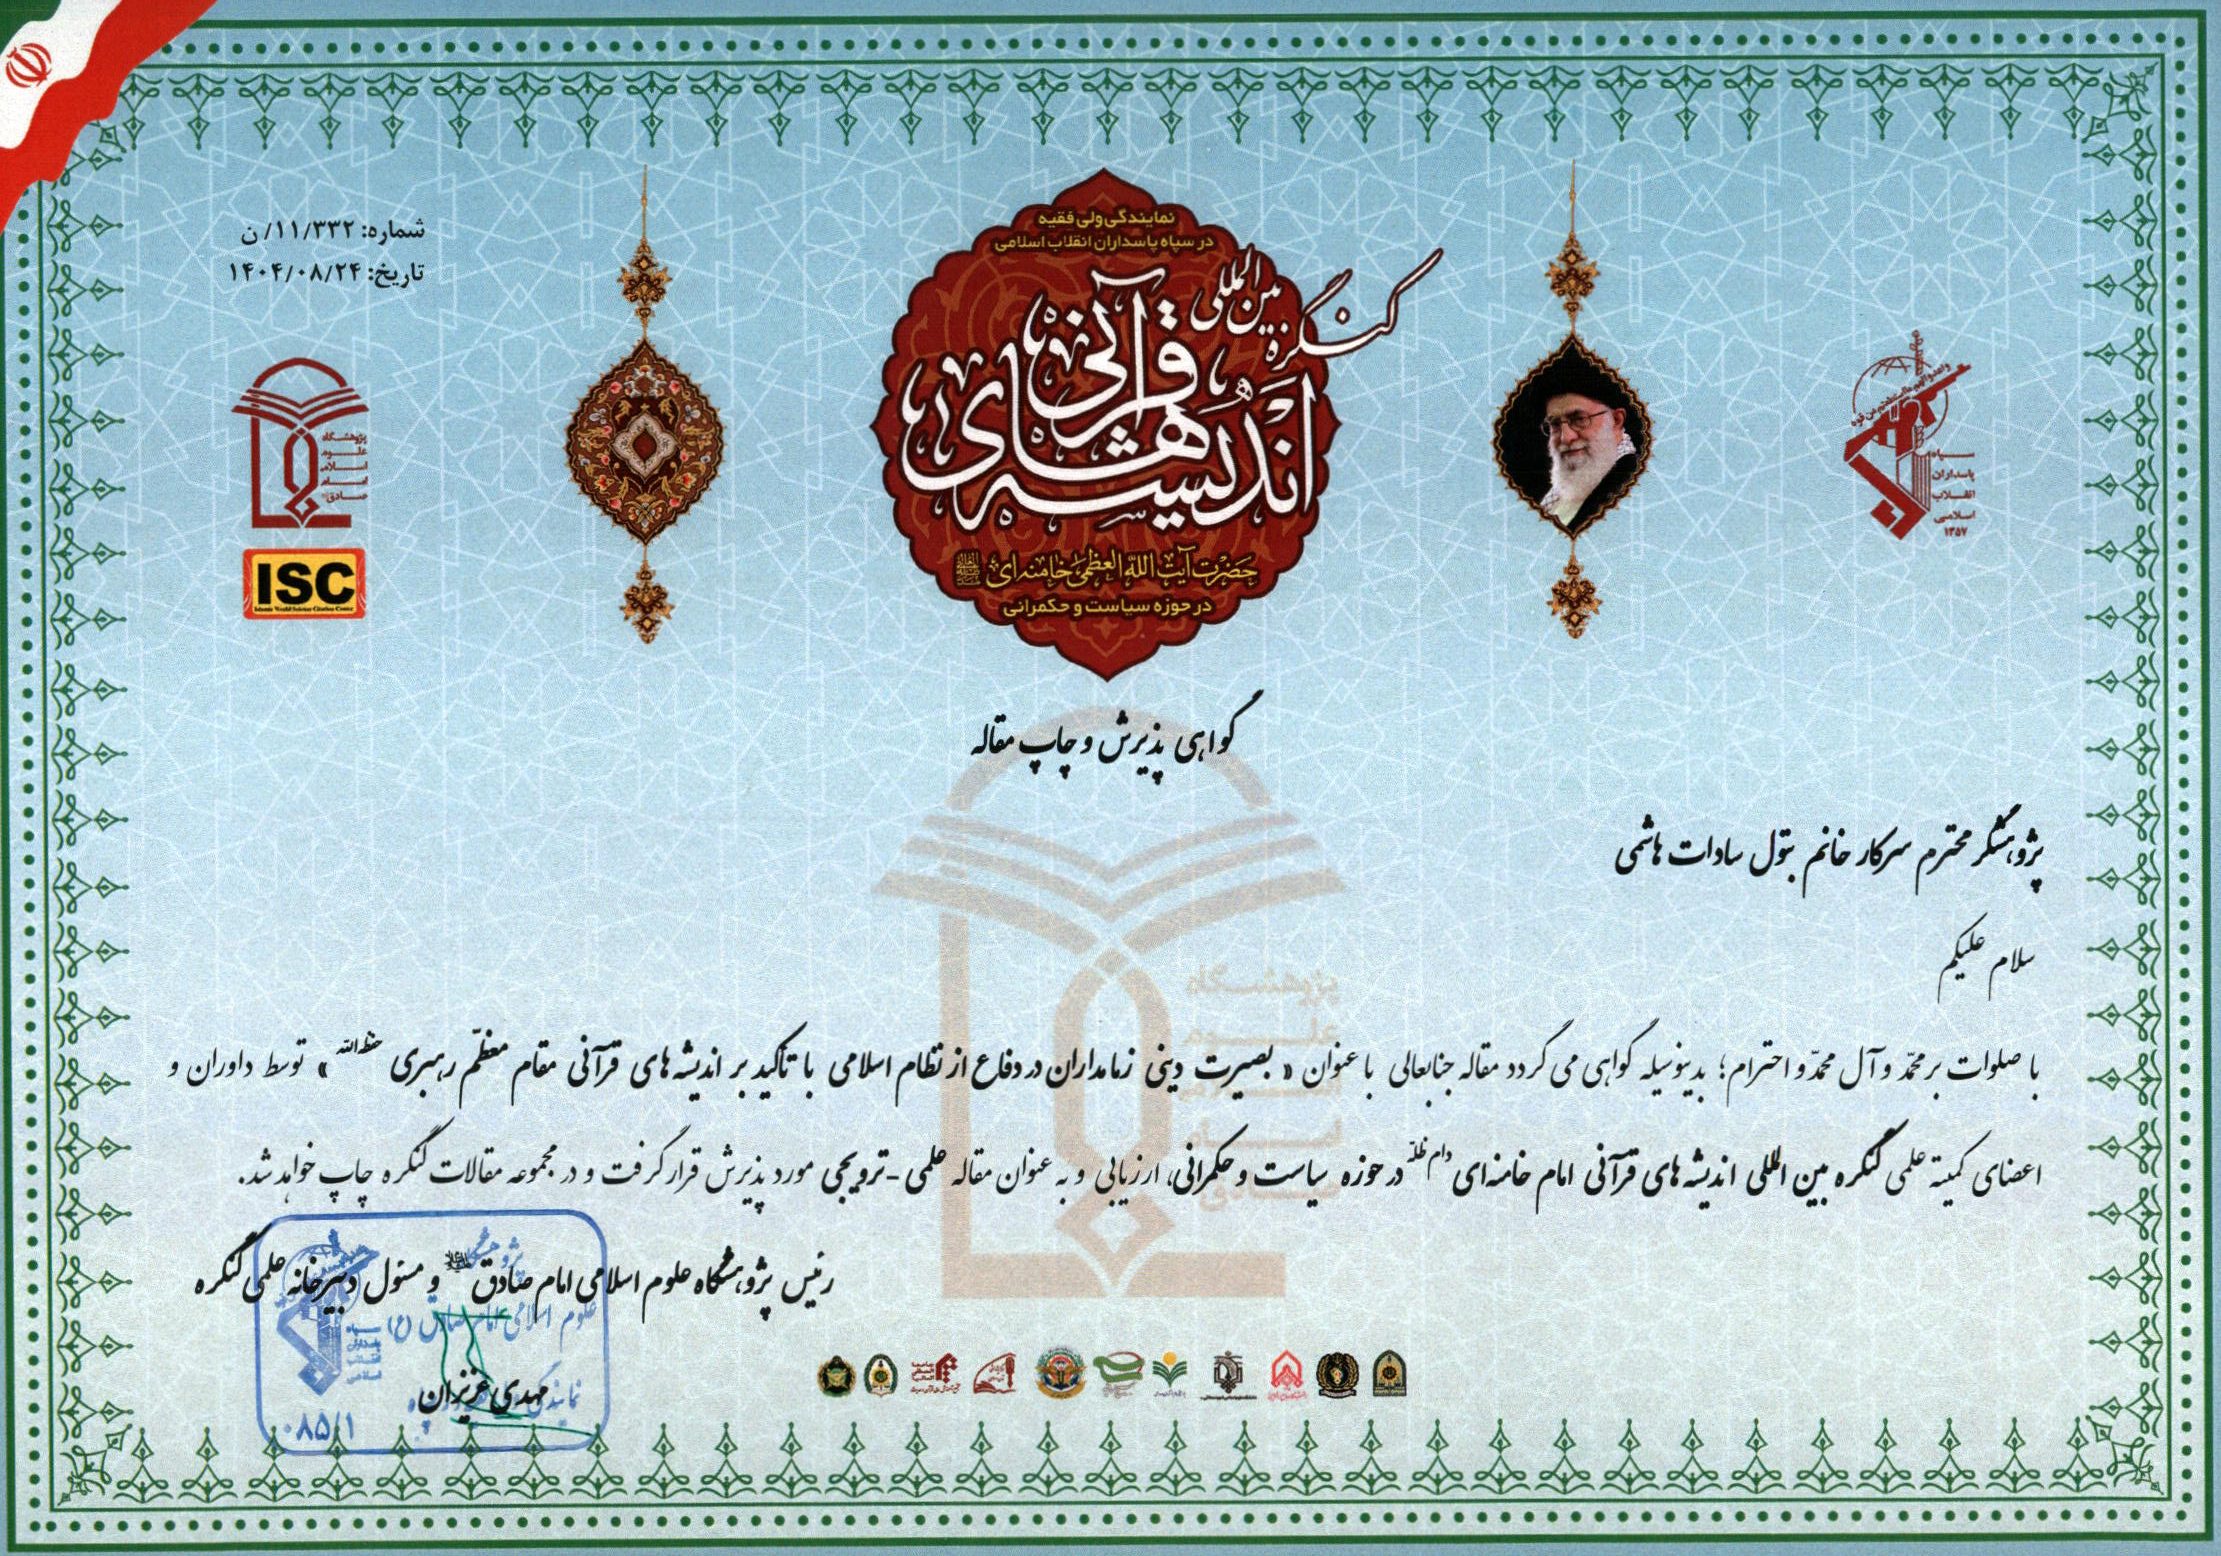 شماره: ۱۱/۳۳۲/ن
تاریخ: ۱۴۰۴/۰۸/۲۴
نمایندگی ولی فقیه
در سپاه پاسداران انقلاب اسلامی
کنگره بین المللی
اندیشه های قرآنی
حضرت آیت الله العظمی خامنه ای
در حوزه سیاست و حکمرانی
سپاه
پاسداران
انقلاب
اسلامی
۱۳۵۷
پژوهشگاه
علوم
اسلامی
امام
صادق
ISC
Islamic World Science Citation Center
گواهی پذیرش و چاپ مقاله
پژوهشگر محترم سرکار خانم بتول سادات هاشمی
سلام علیکم
با صلوات بر محمّد و آل محمّد و احترام؛ بدینوسیله گواهی می گردد مقاله جنابعالی با عنوان « بصیرت دینی زمامداران در دفاع از نظام اسلامی با تأکید بر اندیشه های قرآنی مقام معظّم رهبری حفظه الله » توسط داوران و
اعضای کمیته علمی کنگره بین المللی اندیشه های قرآنی امام خامنه ای دام ظلّه در حوزه سیاست و حکمرانی، ارزیابی و به عنوان مقاله علمی -ترویجی مورد پذیرش قرار گرفت و در مجموعه مقالات کنگره چاپ خواهد شد.
رئیس پژوهشگاه علوم اسلامی امام صادق و مسئول دبیرخانه علمی کنگره
مهدی عزیزان
پژوهشگاه
علوم اسلامی امام صادق (ع)
سپاه
پاسداران
انقلاب
اسلامی
۰۸۵/۱